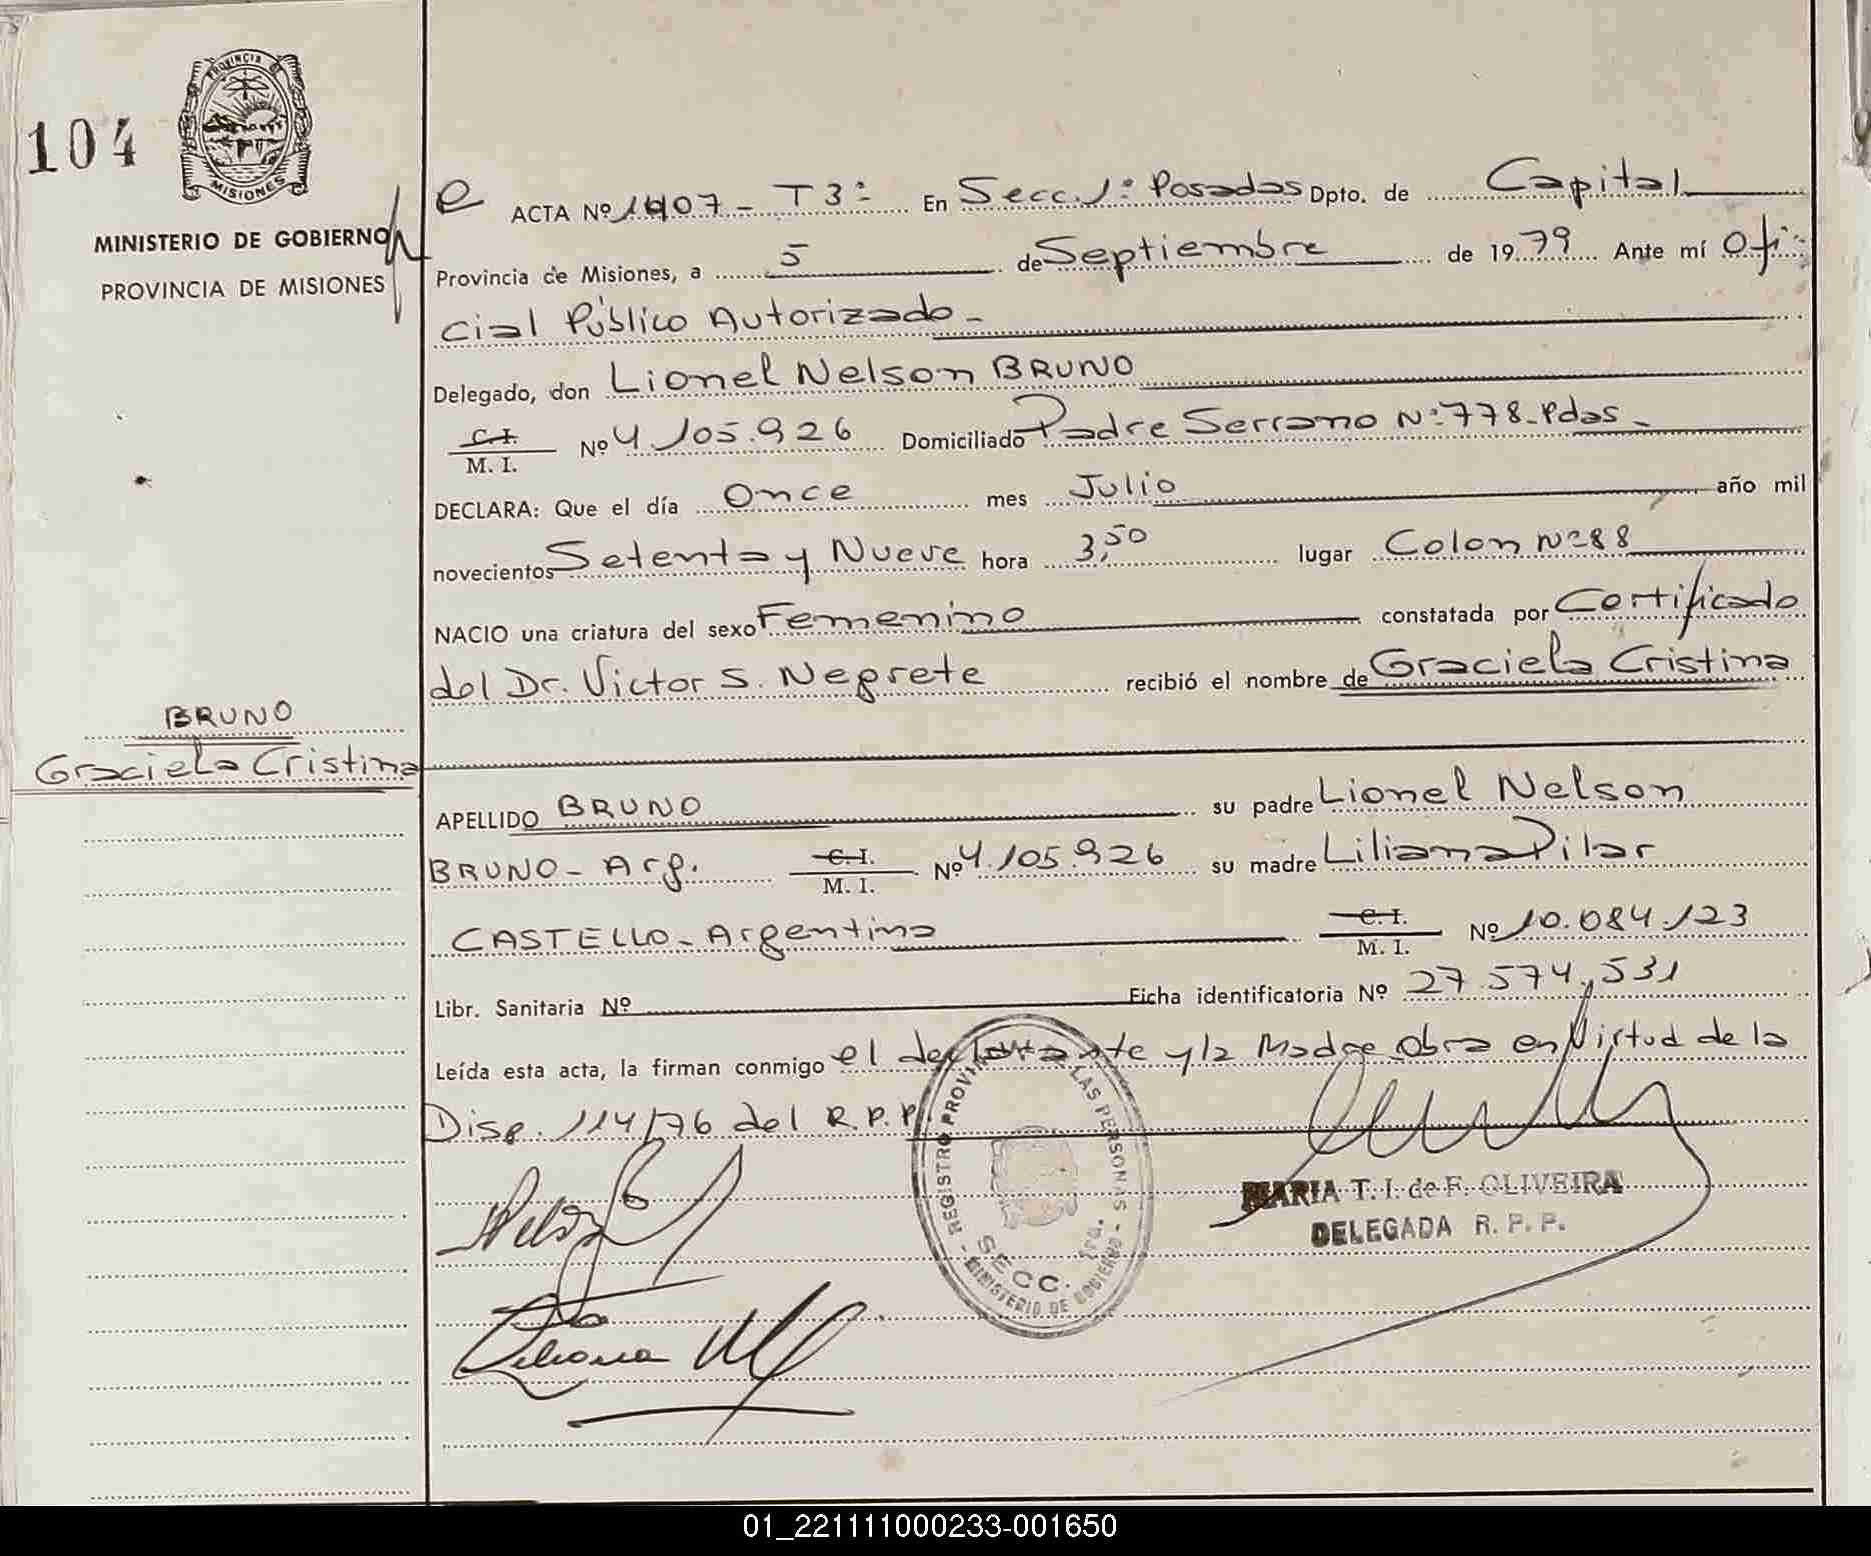 104
PROVINCIA DE
MISIONES
MINISTERIO DE GOBIERNO
PROVINCIA DE MISIONES
ACTA Nº 1407 - T3º En Secc. 1º Posadas Dpto. de Capital
Provincia de Misiones, a 5 de Septiembre de 1979 Ante mí Ofi-
cial Público Autorizado -
Delegado, don Lionel Nelson BRUNO
C.I.
M. I. Nº 4.105.926 Domiciliado Padre Serrano Nº 778 - Pdas -
DECLARA: Que el día Once mes Julio año mil
novecientos Setenta y Nueve hora 3,50 lugar Colon Nº 88
NACIO una criatura del sexo Femenino constatada por Certificado
del Dr. Victor S. Negrete recibió el nombre de Graciela Cristina
BRUNO
Graciela Cristina
APELLIDO BRUNO su padre Lionel Nelson
BRUNO - Arg. C.I.
M. I. Nº 4.105.926 su madre Liliana Pilar
CASTELLO - Argentina C.I.
M. I. Nº 10.084.123
Libr. Sanitaria Nº Ficha identificatoria Nº 27.574.531
Leída esta acta, la firman conmigo el declarante y la Madre Obra en Virtud de la
Disp. 114/76 del R.P.P.
REGISTRO PROVINCIAL DE LAS PERSONAS - MINISTERIO DE GOBIERNO -
SECC. 1ra.
MARIA T. I. de F. OLIVEIRA
DELEGADA R. P. P.
01_221111000233-001650